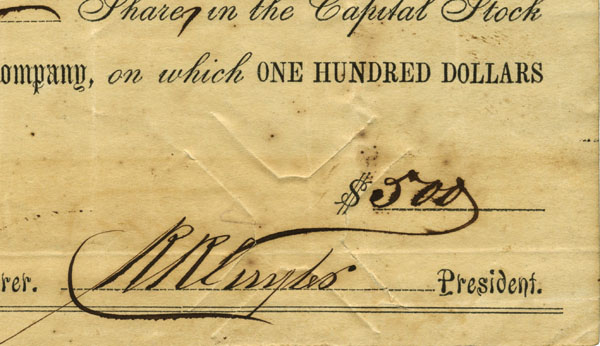 Share, in the Capital Stock
ompany, on which ONE HUNDRED DOLLARS
$ 500
R R Cuyler
rer. President.